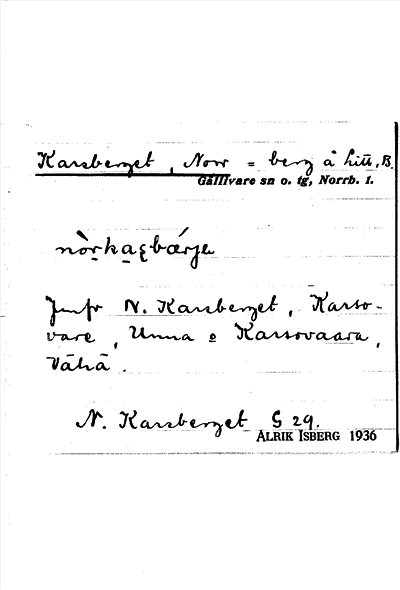 Karsberget, Norr = berg å hitt. B.
Gällivare sn o. tg, Norrb. l.
nòrkaʂbǽrje
Jmfr N. Karsberget, Karso-
vare, Unna o Karsovaara,
Vähä.
N. Karsberget G 29.
ALRIK ISBERG 1936